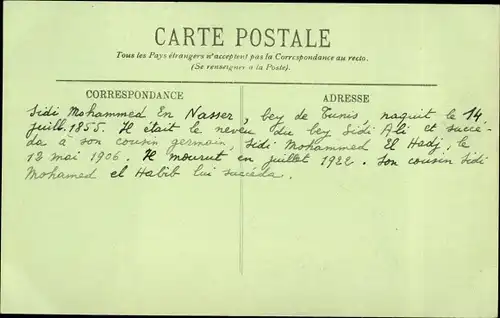 CARTE POSTALE
Tous les Pays étrangers n'acceptent pas la Correspondance au recto.
(Se renseigner à la Poste).
CORRESPONDANCE
ADRESSE
Sidi Mohammed En Nasser, bey de Tunis, naquit le 14
juill. 1855. Il était le neveu du bey Sidi Ali et succé-
da à son cousin germain, Sidi Mohammed El Hadj, le
12 mai 1906. Il mourut en juillet 1922. Son cousin Sidi
Mohamed el Habib lui succéda.